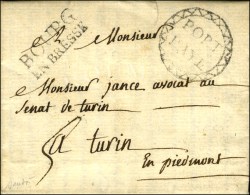 A Monsieur
BOURG
EN BRESSE
PORT
PAYÉ
Monsieur jance avocat au
Senat de turin
A turin
En piedmont